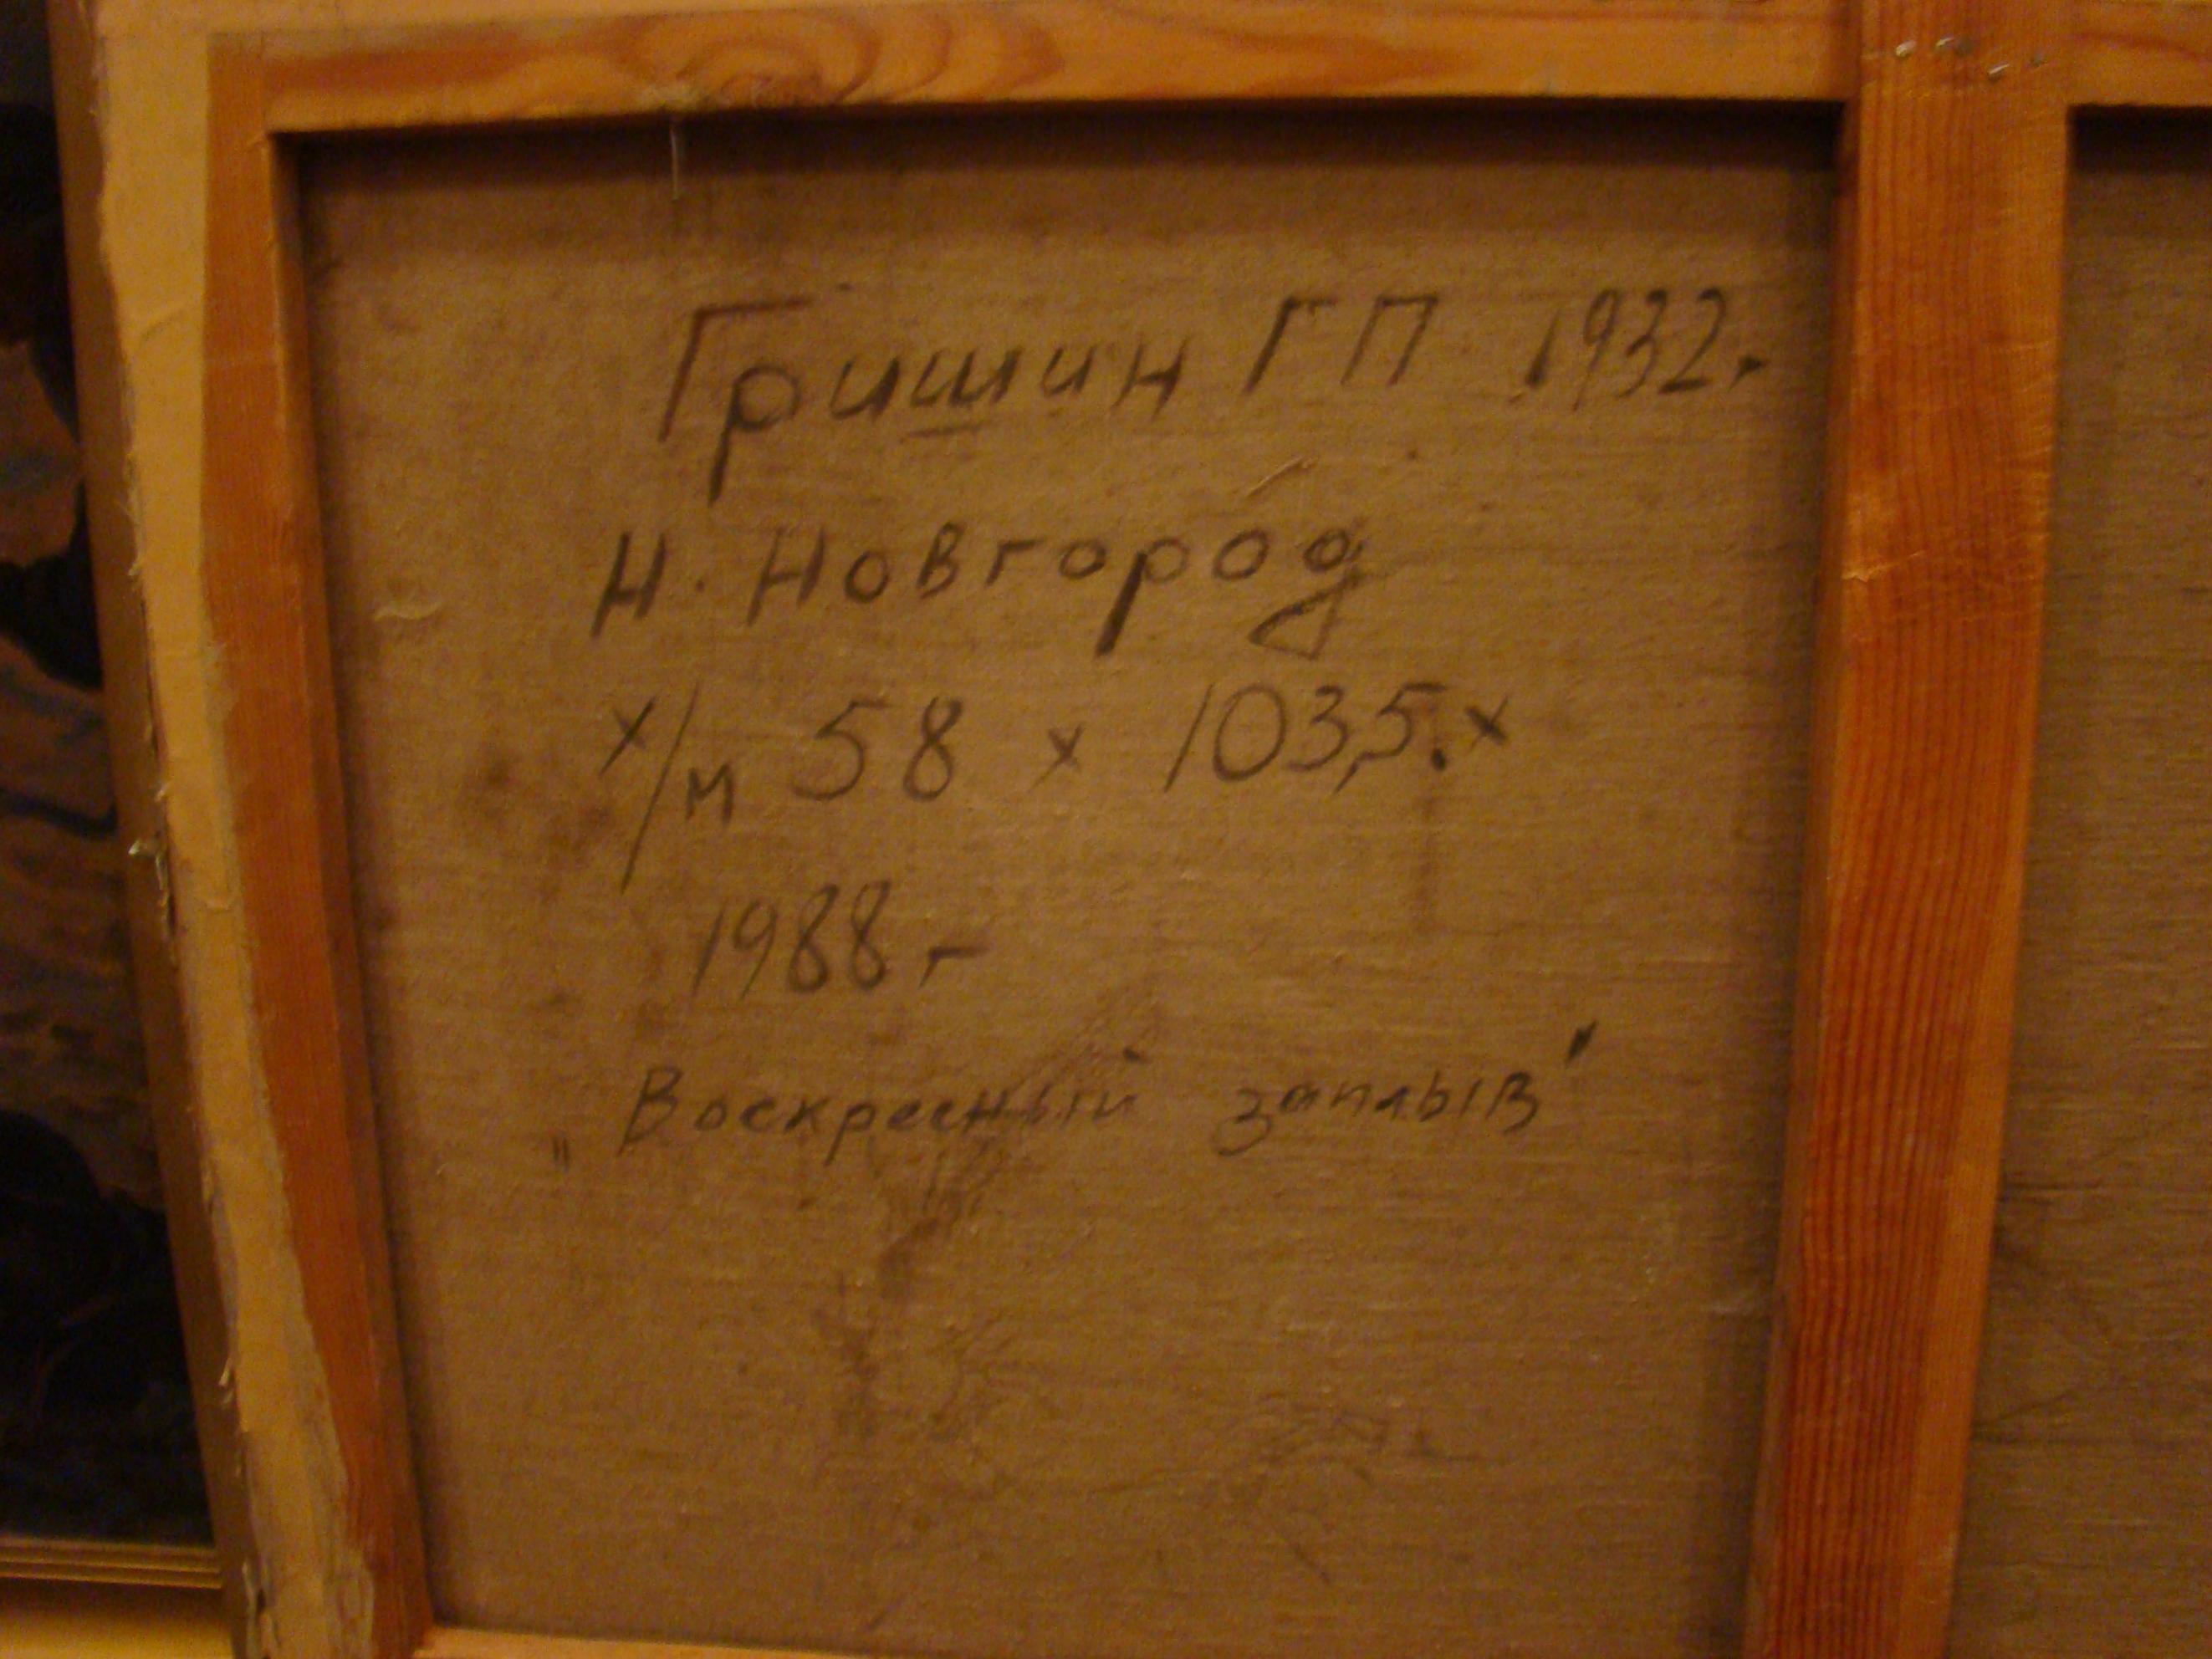 Гришин ГП 1932г
Н. Новгород
х/м 58 х 103,5. х
1988 г
„Воскресный заплыв"